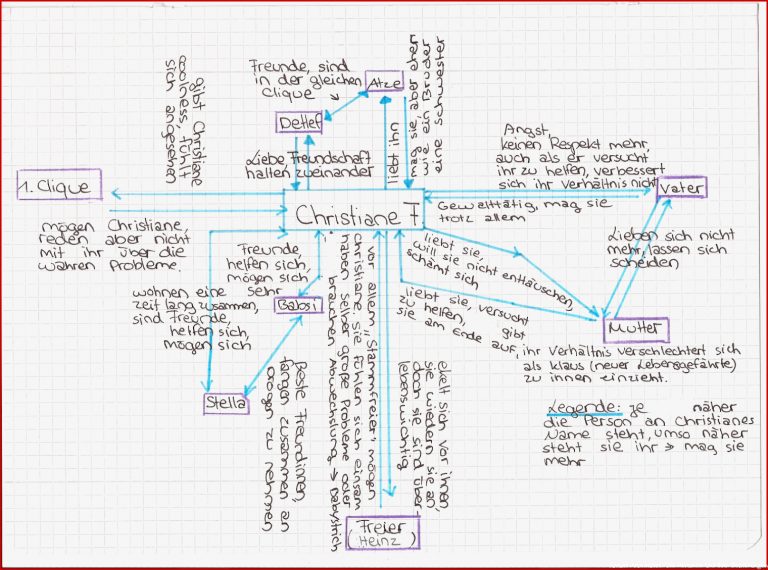 gibt Christiane
coolness fühlt
sich angesehen
Freunde, sind
in der gleichen
Clique
Atze
Detlef
Liebe, Freundschaft
halten zueinander
liebt ihn
mag sie, aber eher
wie ein Bruder
eine schwester
Angst,
keinen Respekt mehr,
auch als er versucht
ihr zu helfen, verbessert
sich ihr Verhältnis nicht
Vater
Gewalttätig, mag sie
trotz allem
1. Clique
Christiane F.
mögen Christiane,
reden aber nicht
mit ihr über die
wahren Probleme.
Freunde,
helfen sich,
mögen sich
Babsi
wohnen eine sehr
zeit lang zusammen,
sind Freunde,
helfen sich,
mögen sich
Stella
Beste Freundinnen,
fangen zusammen an
Drogen zu nehmen
vor allem "Stammfreier" mögen
Christiane, sie fühlen sich einsam
haben selber große Probleme oder
brauchen Abwechslung → Babystrich
ekelt sich vor ihnen,
sie wiedern sie an,
doch sie sind über-
lebenswichtig
Freier
(Heinz)
liebt sie,
will sie nicht enttäuschen,
schämt sich
liebt sie, versucht
zu helfen, gibt
sie am Ende auf,
Lieben sich nicht
mehr, lassen sich
scheiden
Mutter
ihr Verhältnis verschlechtert sich
als Klaus (neuer Lebensgefährte)
zu ihnen einzieht.
Legende: Je näher
die Person an Christianes
Name steht, umso näher
steht sie ihr → mag sie
mehr